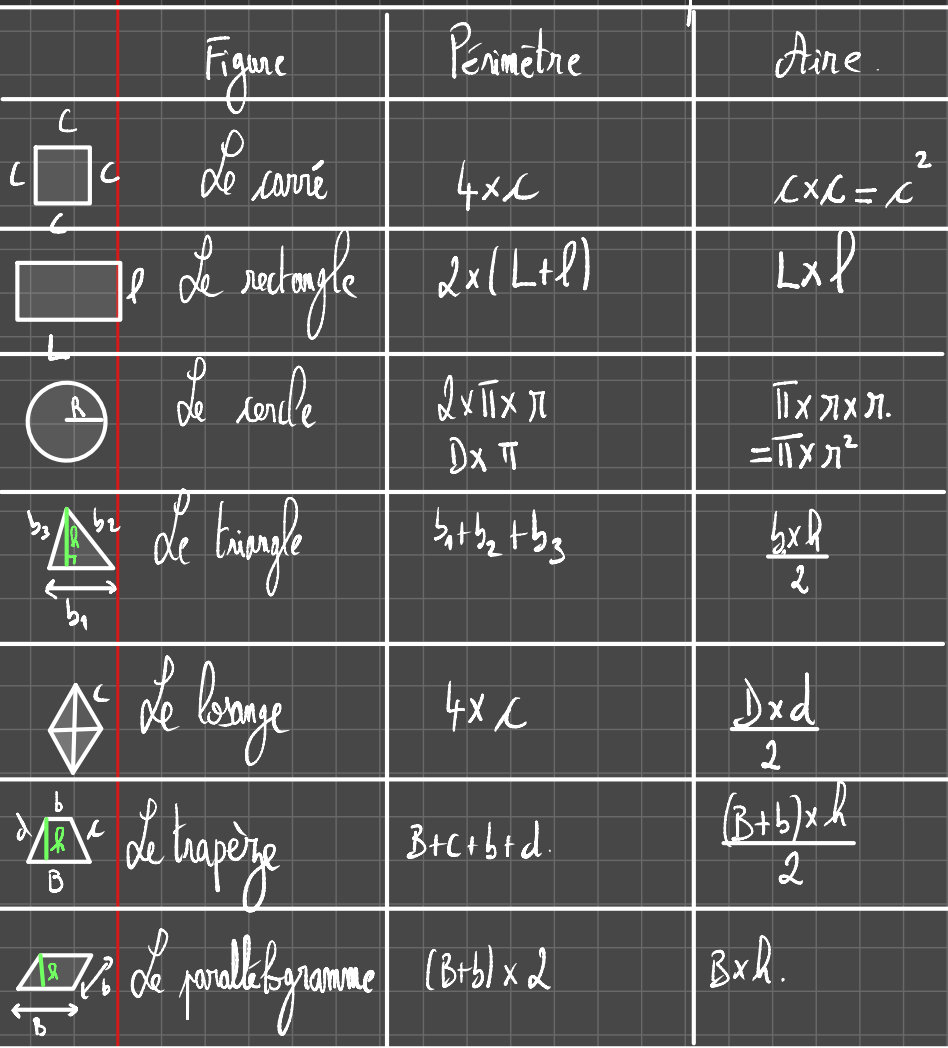 Figure Périmètre Aire.
C
C C Le carré 4×c c×c = c²
C
l Le rectangle 2×(L+l) L×l
L
R Le cercle 2×π×r π×r×r.
D×π =π×r²
b₃ h b₂ Le triangle b₁+b₂+b₃ b×h
2
b₁
c Le losange 4×c D×d
2
b
d h c Le trapèze B+c+b+d. (B+b)×h
B 2
h b Le parallélogramme (B+b)×2 B×h.
B